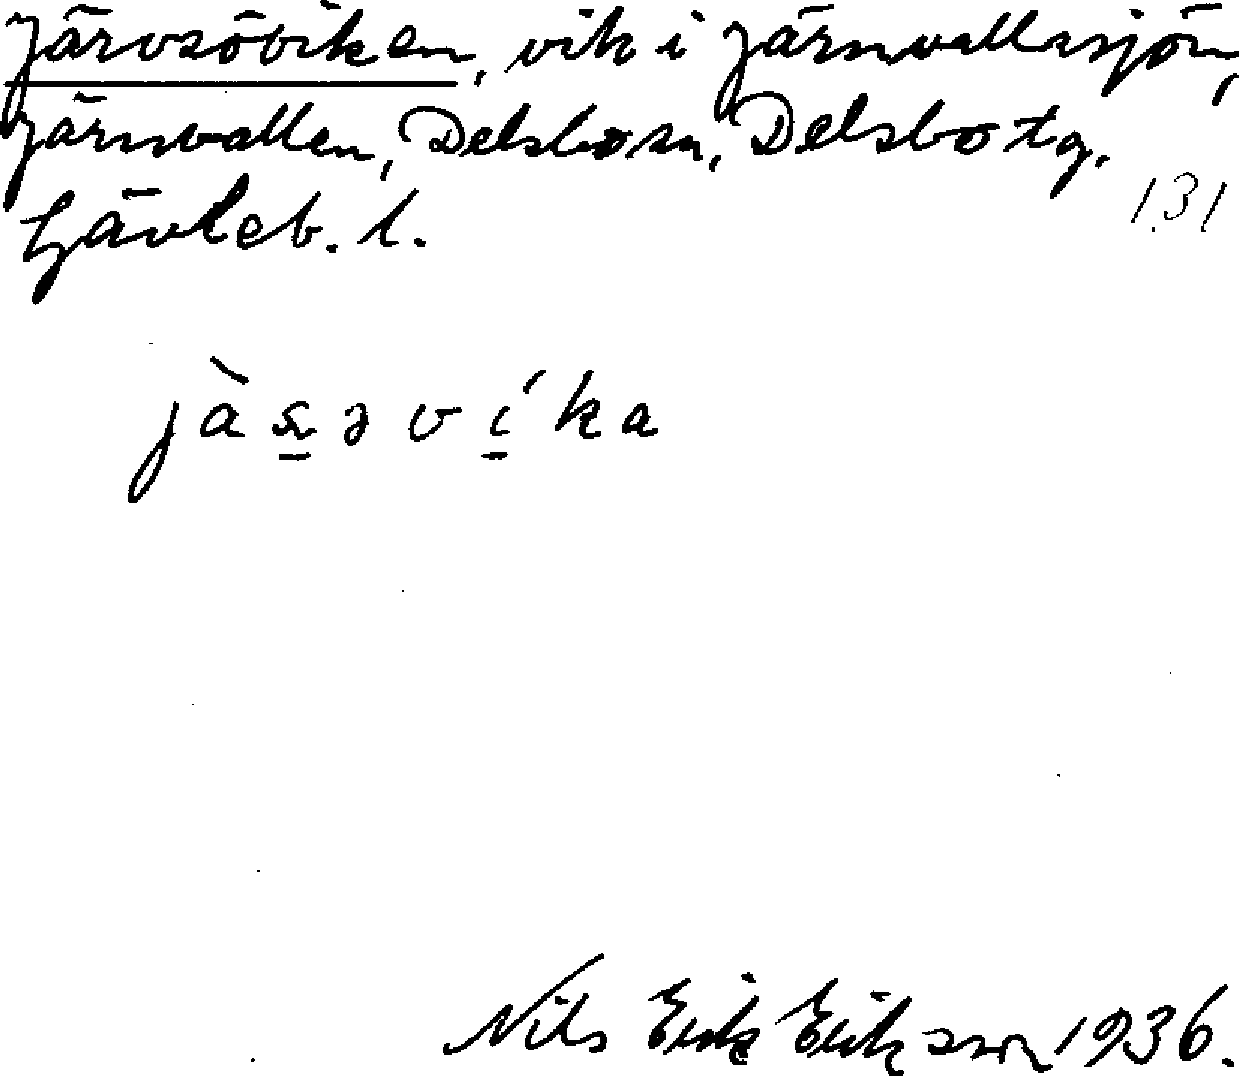 Järvsöviken, vik i Järnvallsjön,
Järnvallen, Delsbo sn, Delsbo tg,
Gävleb. l.
131
jàs̱əví̱ka
Nils Erik Eriksson 1936.